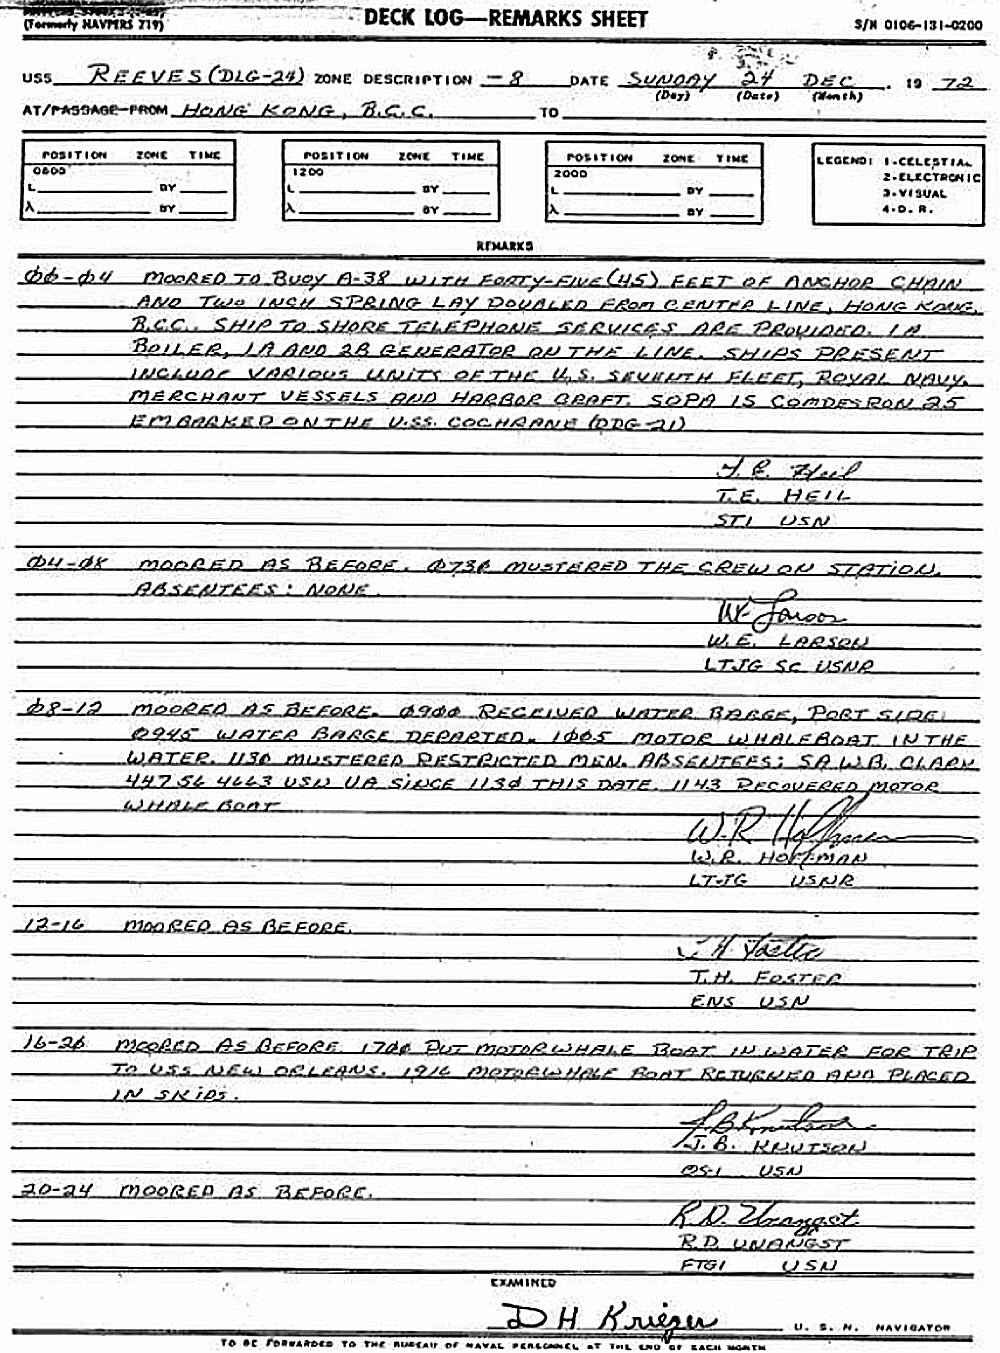 (Formerly NAVPERS 719)
DECK LOG—REMARKS SHEET
S/N 0106-131-0200
USS REEVES (DLG-24) ZONE DESCRIPTION -8 DATE SUNDAY 24 DEC. 19 72
(Day) (Date) (Month)
AT/PASSAGE FROM HONG KONG, B.C.C. TO
POSITION ZONE TIME
0800
L BY
λ BY
POSITION ZONE TIME
1200
L BY
λ BY
POSITION ZONE TIME
2000
L BY
λ BY
LEGEND: 1-CELESTIAL
2-ELECTRONIC
3-VISUAL
4-D. R.
REMARKS
00-04 MOORED TO BUOY A-38 WITH FORTY-FIVE (45) FEET OF ANCHOR CHAIN
AND TWO INCH SPRING LAY DOUBLED FROM CENTER LINE, HONG KONG,
B.C.C. SHIP TO SHORE TELEPHONE SERVICES ARE PROVIDED. 1A
BOILER, 1A AND 2B GENERATOR ON THE LINE. SHIPS PRESENT
INCLUDE VARIOUS UNITS OF THE U.S. SEVENTH FLEET, ROYAL NAVY,
MERCHANT VESSELS AND HARBOR CRAFT. SOPA IS COMDESRON 25
EMBARKED ON THE U.S.S. COCHRANE (DDG-21)
T. E. Heil
T.E. HEIL
ST1 USN
04-08 MOORED AS BEFORE. 0730 MUSTERED THE CREW ON STATION.
ABSENTEES: NONE.
WE Larson
W.E. LARSON
LTJG SC USNR
08-12 MOORED AS BEFORE. 0900 RECEIVED WATER BARGE, PORT SIDE.
0945 WATER BARGE DEPARTED. 1005 MOTOR WHALEBOAT IN THE
WATER. 1130 MUSTERED RESTRICTED MEN. ABSENTEES: SA W.B. CLARK
447 56 4663 USN UA SINCE 1130 THIS DATE. 1143 RECOVERED MOTOR
WHALE BOAT
W.R. Hoffman
W.R. HOFFMAN
LTJG USNR
12-16 MOORED AS BEFORE.
T H Foster
T.H. FOSTER
ENS USN
16-20 MOORED AS BEFORE. 1700 PUT MOTORWHALE BOAT IN WATER FOR TRIP
TO USS NEW ORLEANS. 1916 MOTORWHALE BOAT RETURNED AND PLACED
IN SKIDS.
J B Knutson
J.B. KNUTSON
OS1 USN
20-24 MOORED AS BEFORE.
R.D. Unangst
R.D. UNANGST
FTG1 USN
EXAMINED
D H Krieger U. S. N. NAVIGATOR
TO BE FORWARDED TO THE BUREAU OF NAVAL PERSONNEL AT THE END OF EACH MONTH